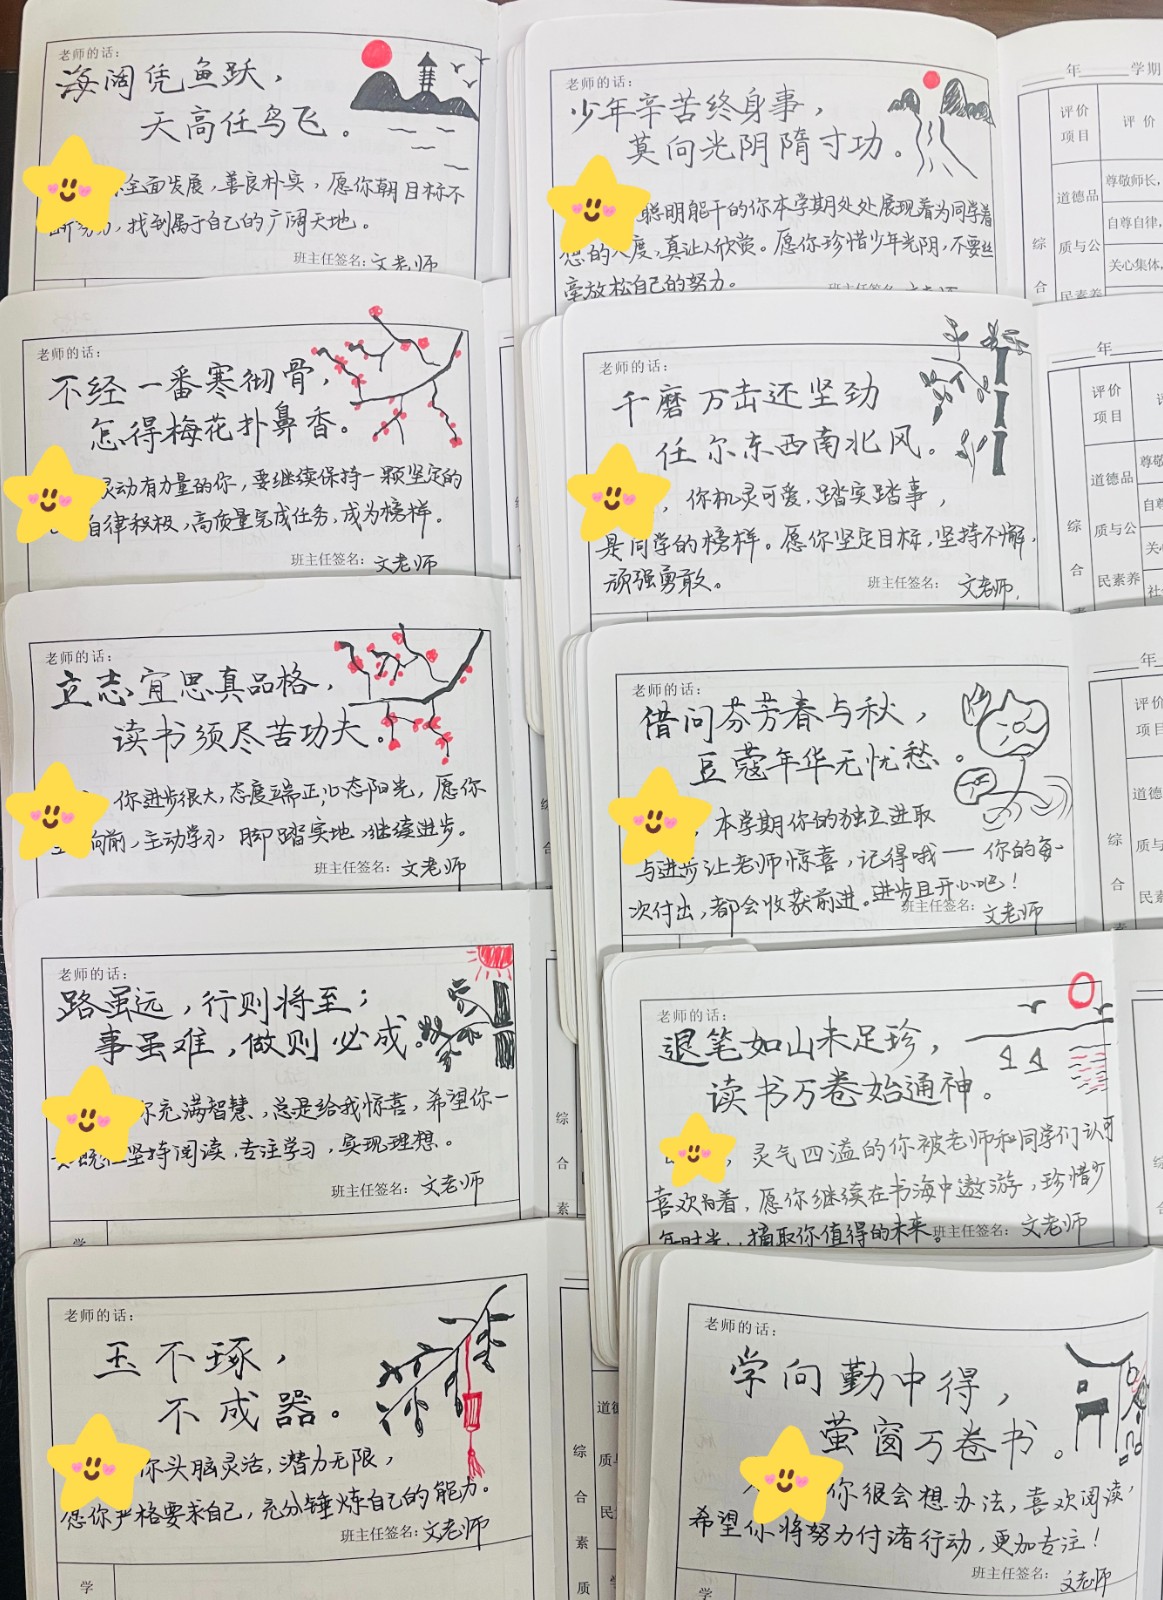 老师的话：
海阔凭鱼跃，
天高任鸟飞。
全面发展，善良朴实，愿你朝目标不
，找到属于自己的广阔天地。
班主任签名：文老师
老师的话：
不经一番寒彻骨，
怎得梅花扑鼻香。
灵动有力量的你，要继续保持一颗坚定的
自律积极，高质量完成任务，成为榜样。
班主任签名：文老师
老师的话：
立志宜思真品格，
读书须尽苦功夫。
你进步很大，态度端正，心态阳光，愿你
向前，主动学习 脚踏实地，继续进步。
班主任签名：文老师
老师的话：
路虽远，行则将至；
事虽难，做则必成。
你充满智慧、总是给我惊喜，希望你一
坚持阅读，专注学习，实现理想。
班主任签名：文老师
学
老师的话：
玉不琢，
不成器。
你头脑灵活，潜力无限，
愿你严格要求自己，充分锤炼自己的能力。
班主任签名：文老师
学
老师的话：
少年辛苦终身事，
莫向光阴隋寸功。
聪明能干的你本学期处处展现着为同学着
想的人度，真让人欣赏。愿你珍惜少年光阴，不要丝
毫放松自己的努力。
班主任签名：文老师
年 学期
评价
项目
评 价
道德品
质与公
民素养
尊敬师长，
自尊自律，
关心集体，
综
合
老师的话：
千磨万击还坚劲
任尔东西南北风。
，你机灵可爱，踏实踏事，
是同学的榜样。愿你坚定目标，坚持不懈，
顽强勇敢。
班主任签名：文老师
年
评价
项目
道德品
质与公
民素养
综
合
老师的话：
借问芬芳春与秋，
豆蔻年华无忧愁。
，本学期你的独立进取
与进步让老师惊喜，记得哦——你的每一
次付出，都会收获前进。进步且开心吧！
班主任签名：文老师
年
评价
项目
综
合
老师的话：
退笔如山未足珍，
读书万卷始通神。
，灵气四溢的你被老师和同学们认可
喜欢着，愿你继续在书海中遨游，珍惜少
年时光，摘取你值得的未来。
班主任签名：文老师
老师的话：
学向勤中得，
萤窗万卷书。
你很会想办法，喜欢阅读，
希望你将努力付诸行动，更加专注！
班主任签名：文老师
学
综
合
素
质